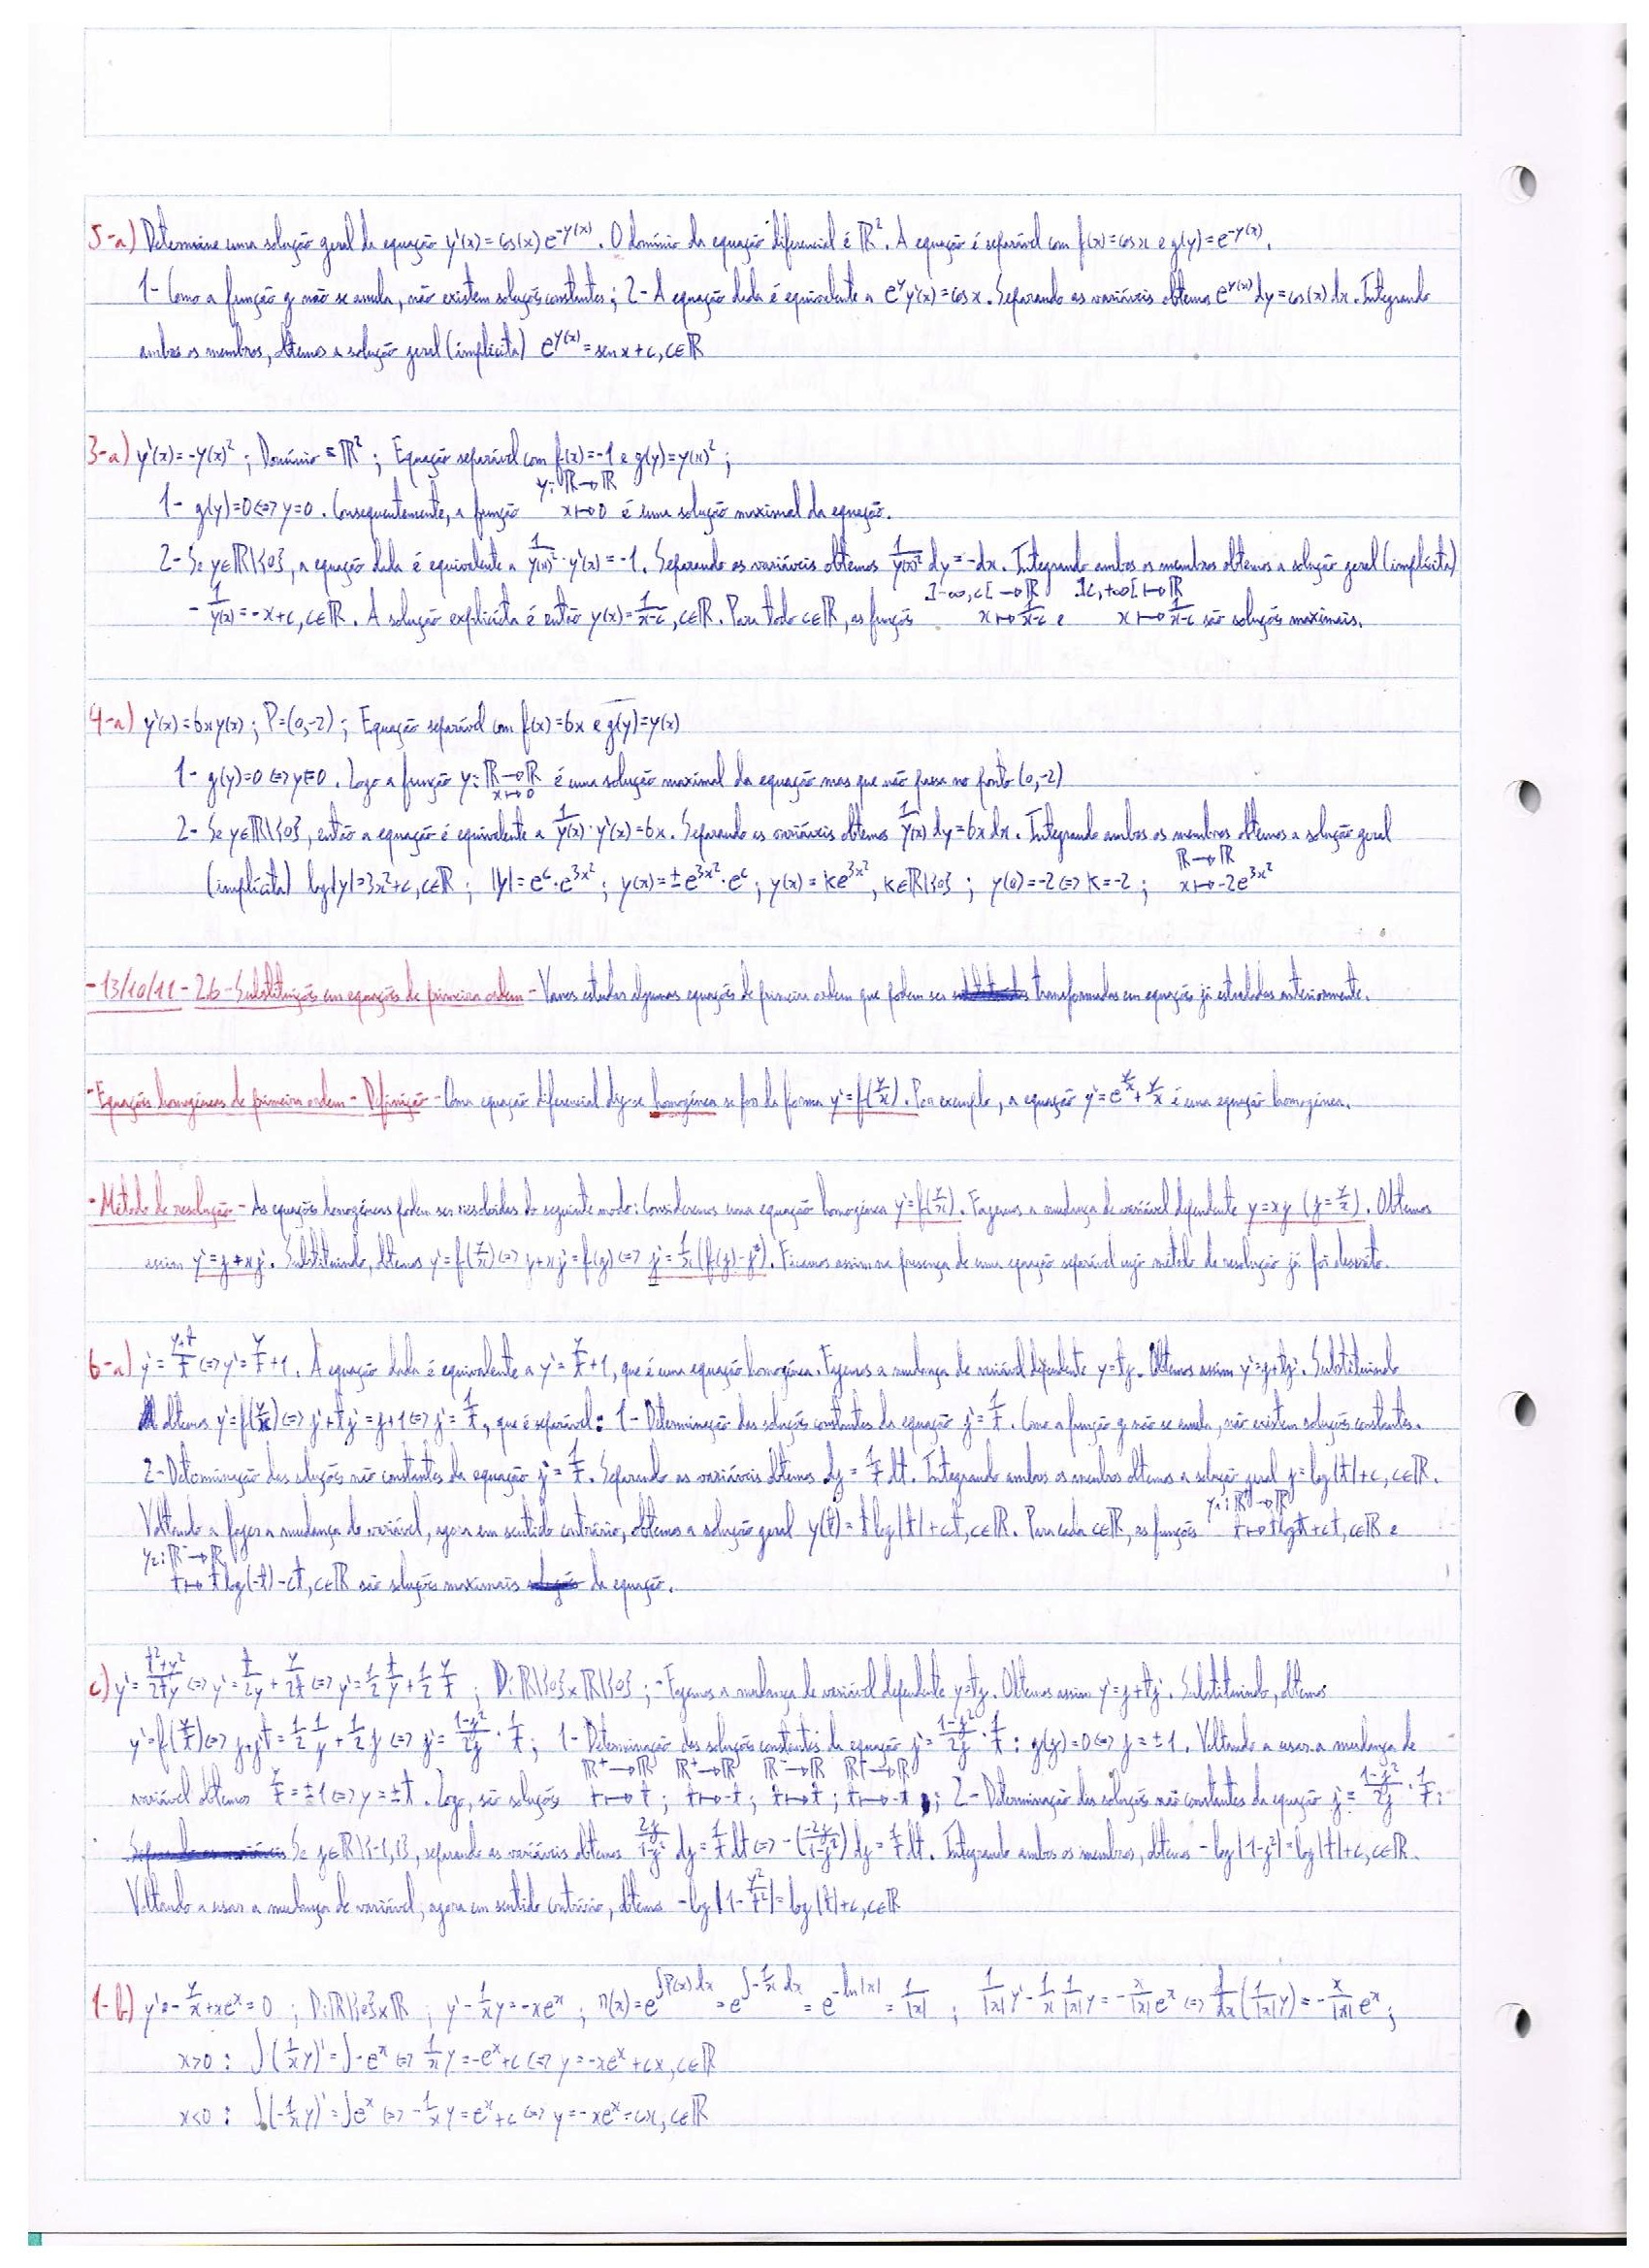 5-a) Determine uma solução geral da equação y'(x)=cos(x)e^-y(x). O domínio da equação diferencial é ℝ². A equação é separável com f(x)=cos x e g(y)=e^-y(x).
1- Como a função g não se anula, não existem soluções constantes; 2- A equação dada é equivalente a e^y y'(x)=cos x. Separando as variáveis obtemos e^y(x) dy=cos(x) dx. Integrando
ambos os membros, obtemos a solução geral (implícita) e^y(x)=sen x+c, c∈ℝ
3-a) y'(x)=-y(x)²; Domínio=ℝ²; Equação separável com f(x)=-1 e g(y)=y(x)²;
1- g(y)=0⇔y=0. Consequentemente, a função y: ℝ→ℝ x↦0 é uma solução maximal da equação.
2- Se y∈ℝ\{0}, a equação dada é equivalente a 1/y(x)²·y'(x)=-1. Separando as variáveis obtemos 1/y(x)² dy=-dx. Integrando ambos os membros obtemos a solução geral (implícita)
-1/y(x)=-x+c, c∈ℝ. A solução explícita é então y(x)=1/x-c, c∈ℝ. Para todo c∈ℝ, as funções ]-∞,c[→ℝ x↦1/x-c e ]c,+∞[↦ℝ x↦1/x-c são soluções maximais.
4-a) y'(x)=6xy(x); P=(0,-2); Equação separável com f(x)=6x e g(y)=y(x)
1- g(y)=0⇔y=0. Logo a função y: ℝ→ℝ x↦0 é uma solução maximal da equação mas que não passa no ponto (0,-2)
2- Se y∈ℝ\{0}, então a equação é equivalente a 1/y(x)·y'(x)=6x. Separando as variáveis obtemos 1/y(x) dy=6x dx. Integrando ambos os membros obtemos a solução geral
(implícita) log|y|=3x²+c, c∈ℝ; |y|=e^c·e^3x²; y(x)=±e^3x²·e^c; y(x)=ke^3x², k∈ℝ\{0}; y(0)=-2⇔k=-2; ℝ→ℝ x↦-2e^3x²
-13/10/11-2.6-Substituições em equações de primeira ordem- Vamos estudar algumas equações de primeira ordem que podem ser transformadas em equações já estudadas anteriormente.
-Equações homogéneas de primeira ordem- Definição- Uma equação diferencial diz-se homogénea se for da forma y'=f(y/x). Por exemplo, a equação y'=e^y/x+y/x é uma equação homogénea.
-Método de resolução- As equações homogéneas podem ser resolvidas do seguinte modo: Consideremos uma equação homogénea y'=f(y/x). Fazemos a mudança de variável dependente y=xz (z=y/x). Obtemos
assim y'=z+xz'. Substituindo, obtemos y'=f(y/x)⇔z+xz'=f(z)⇔z'=1/x(f(z)-z). Ficamos assim na presença de uma equação separável cujo método de resolução já foi descrito.
6-a) y'=y+t/t⇔y'=y/t+1. A equação dada é equivalente a y'=y/t+1, que é uma equação homogénea. Fazemos a mudança de variável dependente y=tz. Obtemos assim y'=z+tz'. Substituindo
obtemos y'=f(y/t)⇔z+tz'=z+1⇔z'=1/t, que é separável: 1- Determinação das soluções constantes da equação z'=1/t. Como a função g não se anula, não existem soluções constantes.
2- Determinação das soluções não constantes da equação z'=1/t. Separando as variáveis obtemos dz=1/t dt. Integrando ambos os membros obtemos a solução geral z=log|t|+c, c∈ℝ.
Voltando a fazer a mudança de variável, agora em sentido contrário, obtemos a solução geral y(t)=t log|t|+ct, c∈ℝ. Para cada c∈ℝ, as funções y₁: ℝ⁺→ℝ t↦t log t+ct, c∈ℝ e
y₂: ℝ⁻→ℝ t↦t log(-t)-ct, c∈ℝ são soluções maximais da equação.
c) y'=t²+y²/2ty⇔y'=t/2y+y/2t⇔y'=1/2 t/y+1/2 y/t; D: ℝ\{0}×ℝ\{0}; - Fazemos a mudança de variável dependente y=tz. Obtemos assim y'=z+tz'. Substituindo, obtemos
y'=f(y/t)⇔z+z't=1/2 1/z+1/2 z⇔z'=1-z²/2z·1/t; 1- Determinação das soluções constantes da equação z'=1-z²/2z·1/t: g(z)=0⇔z=±1. Voltando a usar a mudança de
variável obtemos y/t=±1⇔y=±t. Logo, são soluções ℝ⁺→ℝ t↦t; ℝ⁺→ℝ t↦-t; ℝ⁻→ℝ t↦t; ℝ⁻→ℝ t↦-t; 2- Determinação das soluções não constantes da equação z'=1-z²/2z·1/t:
Se z∈ℝ\{-1,1}, separando as variáveis obtemos 2z/1-z² dz=1/t dt⇔-(-2z/1-z²) dz=1/t dt. Integrando ambos os membros, obtemos -log|1-z²|=log|t|+c, c∈ℝ.
Voltando a usar a mudança de variável, agora em sentido contrário, obtemos -log|1-y²/t²|=log|t|+c, c∈ℝ
1-b) y'-y/x+xe^x=0; D: ℝ\{0}×ℝ; y'-1/x y=-xe^x; μ(x)=e^∫P(x)dx=e^∫-1/x dx=e^-ln|x|=1/|x|; 1/|x| y'-1/x 1/|x| y=-x/|x| e^x⇔d/dx(1/|x| y)=-x/|x| e^x;
x>0: ∫(1/x y)'=∫-e^x⇔1/x y=-e^x+c⇔y=-xe^x+cx, c∈ℝ
x<0: ∫(-1/x y)'=∫e^x⇔-1/x y=e^x+c⇔y=-xe^x-cx, c∈ℝ